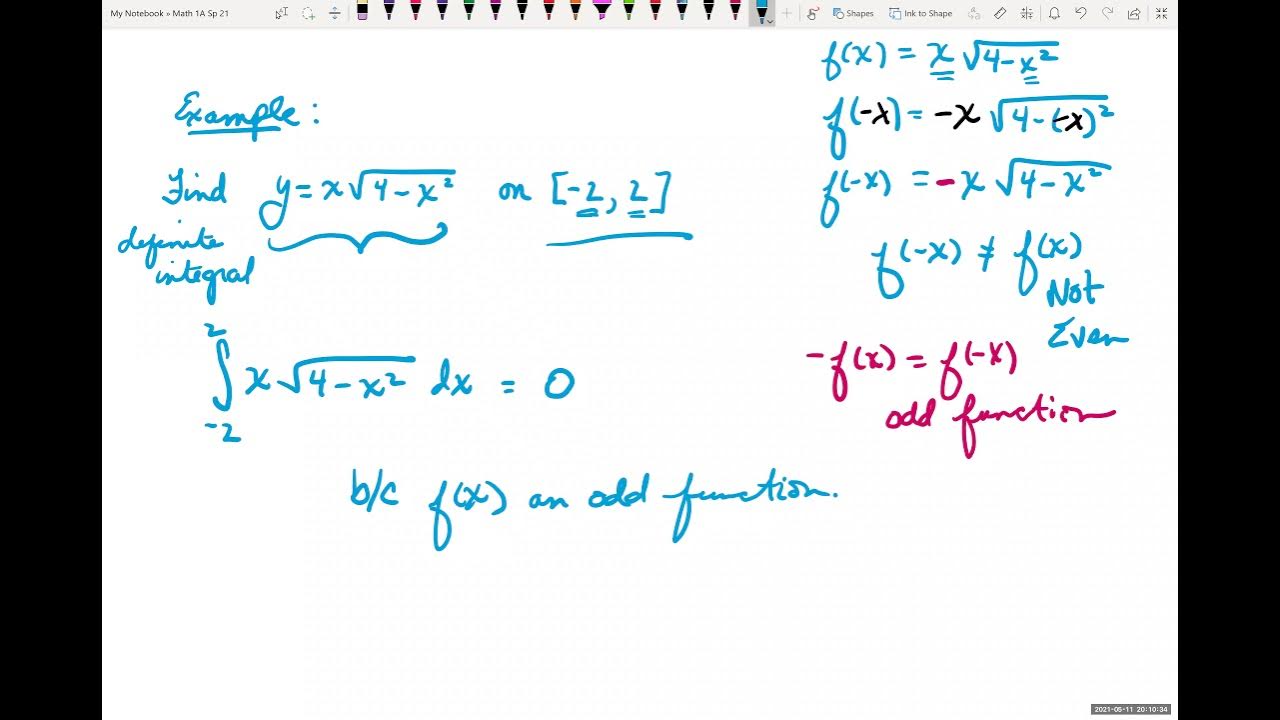 My Notebook » Math 1A Sp 21
Shapes
Ink to Shape
Example:
Find y=x√4-x² on [-2, 2]
definite
integral
2
∫ x√4-x² dx = 0
-2
b/c f(x) an odd function.
f(x) = x√4-x²
f(-x) = -x √4-(-x)²
f(-x) = -x √4-x²
f(-x) ≠ f(x)
Not
Even
-f(x) = f(-x)
odd function
2021-05-11 20:10:34